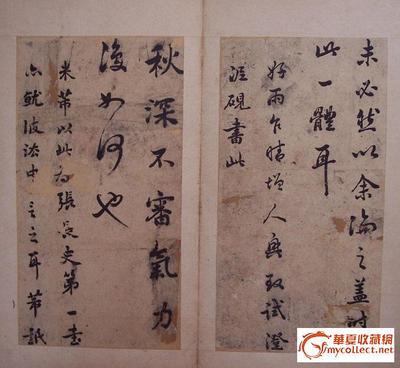 未必然以余論之蓋時
此一體耳
好雨乍晴增人興致試澄
泥硯書此
秋深不審氣力
復如何也
米芾以此為張長史第一書
亦就波法中言之耳芾
華夏收藏網
mycollect.net